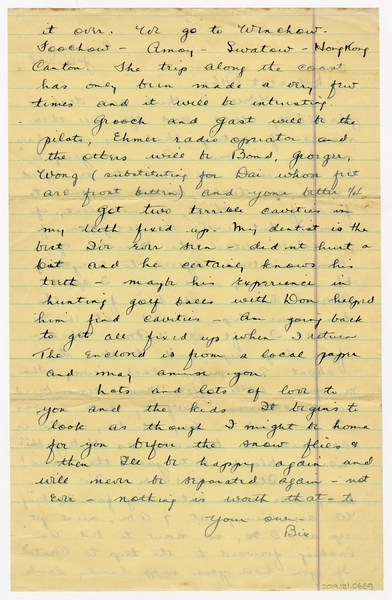 it over. We go to Wenchow.
Foochow - Amoy - Swatow - HongKong
Canton. The trip along the coast
has only been made a very few
times and it will be interesting.
Grooch and Gast will be the
pilots, Ehmer radio operator and
the others will be Bond, Groeger,
Wong (substituting for Dai whose feet
are frost bitten) and yours better ½
Got two terrible cavities in
my teeth fixed up. My dentist is the
best I've ever seen - didn't hurt a
bit and he certainly knows his
teeth. Maybe his experience in
hunting golf balls with Don helped
him find cavities - Am going back
to get all fixed up when I return
The Enclosed is from a local paper
and may amuse you.
Lots and lots of love to
you and the kids. It begins to
look as though I might be home
for you before the snow flies &
then I'll be happy again and
will never be separated again - not
Ever - nothing is worth that - to
Your own -
Bix
2019.21.0669